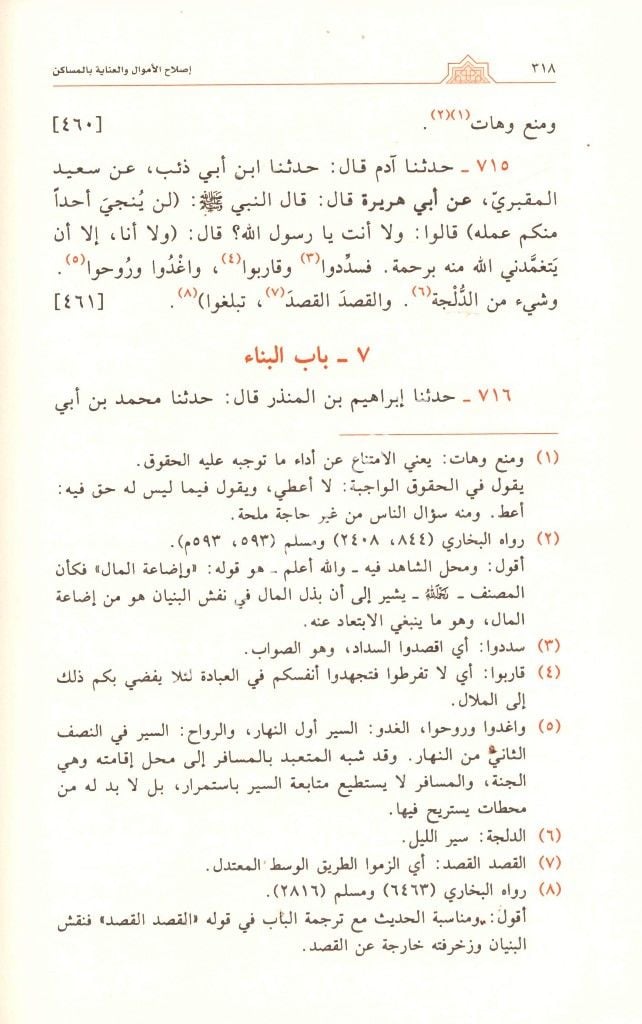 ٣١٨
إصلاح الأموال والعناية بالمساكن
ومنع وهات(١)(٢). [٤٦٠]
٧١٥ ـ حدثنا آدم قال: حدثنا ابن أبي ذئب، عن سعيد
المقبريّ، عن أبي هريرة قال: قال النبي ﷺ: (لن يُنجيَ أحداً
منكم عمله) قالوا: ولا أنت يا رسول الله؟ قال: (ولا أنا، إلا أن
يَتغمَّدني الله منه برحمة. فسدِّدوا(٣) وقاربوا(٤)، واغْدُوا ورُوحوا(٥).
وشيء من الدُّلْجة(٦). والقصدَ القصدَ(٧)، تبلغوا)(٨). [٤٦١]
٧ ـ باب البناء
٧١٦ ـ حدثنا إبراهيم بن المنذر قال: حدثنا محمد بن أبي
(١) ومنع وهات: يعني الامتناع عن أداء ما توجبه عليه الحقوق.
يقول في الحقوق الواجبة: لا أعطي، ويقول فيما ليس له حق فيه:
أعط. ومنه سؤال الناس من غير حاجة ملحة.
(٢) رواه البخاري (٨٤٤، ٢٤٠٨) ومسلم (٥٩٣، ٥٩٣م).
أقول: ومحل الشاهد فيه ـ والله أعلم ـ هو قوله: «وإضاعة المال» فكأن
المصنف ـ رحمه الله ـ يشير إلى أن بذل المال في نقش البنيان هو من إضاعة
المال، وهو ما ينبغي الابتعاد عنه.
(٣) سددوا: أي اقصدوا السداد، وهو الصواب.
(٤) قاربوا: أي لا تفرطوا فتجهدوا أنفسكم في العبادة لئلا يفضي بكم ذلك
إلى الملال.
(٥) واغدوا وروحوا، الغدو: السير أول النهار، والرواح: السير في النصف
الثاني من النهار. وقد شبه المتعبد بالمسافر إلى محل إقامته وهي
الجنة، والمسافر لا يستطيع متابعة السير باستمرار، بل لا بد له من
محطات يستريح فيها.
(٦) الدلجة: سير الليل.
(٧) القصد القصد: أي الزموا الطريق الوسط المعتدل.
(٨) رواه البخاري (٦٤٦٣) ومسلم (٢٨١٦).
أقول: ومناسبة الحديث مع ترجمة الباب في قوله «القصد القصد» فنقش
البنيان وزخرفته خارجة عن القصد.